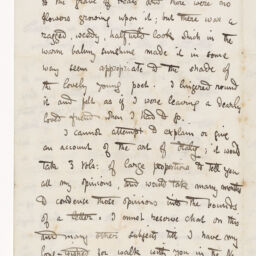 to the grave of Keats and there were no
flowers growing upon it; but there was a
ragged, weedy, look which in the
warm balmy sunshine made it in some
way seem appropriate to the shade of
the lovely young poet. I lingered round
it and felt as if I were leaving a dearly
loved friend when I had to go.
I cannot attempt to explain or give
an account of the art of Italy; it would
take 3 vols: of large proportions to tell you
all my opinions, and would take many months
to condense those opinions into the bounds
of a letter. I must reserve chat on this
and many other subjects till I have my
long for walk with you in the